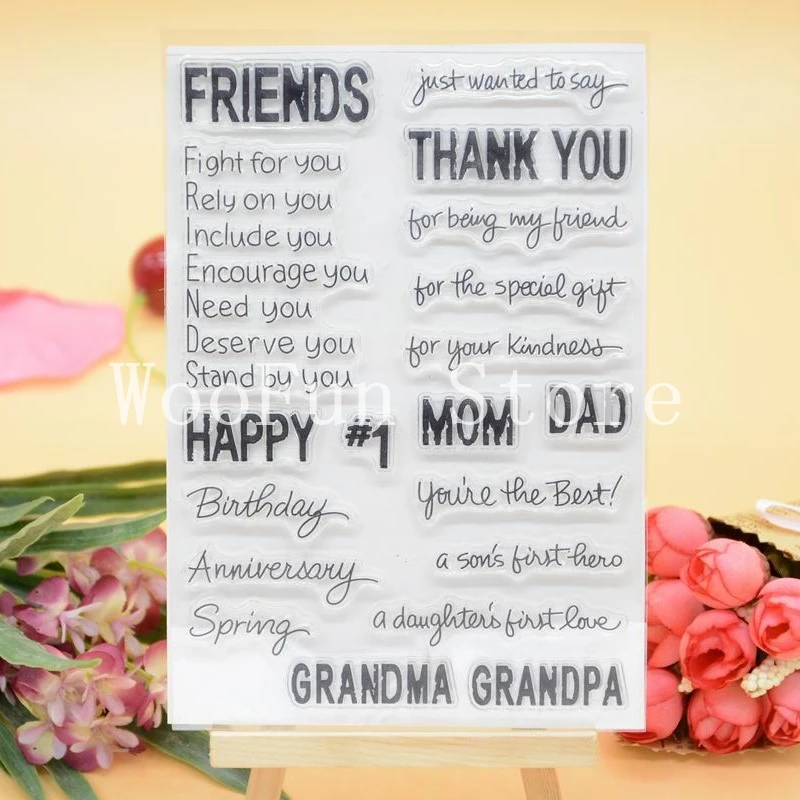 FRIENDS
Fight for you
Rely on you
Include you
Encourage you
Need you
Deserve you
Stand by you
HAPPY #1
Birthday
Anniversary
Spring
just wanted to say
THANK YOU
for being my friend
for the special gift
for your kindness
MOM DAD
You're the Best!
a son's first hero
a daughter's first love
GRANDMA GRANDPA
WooFun Store